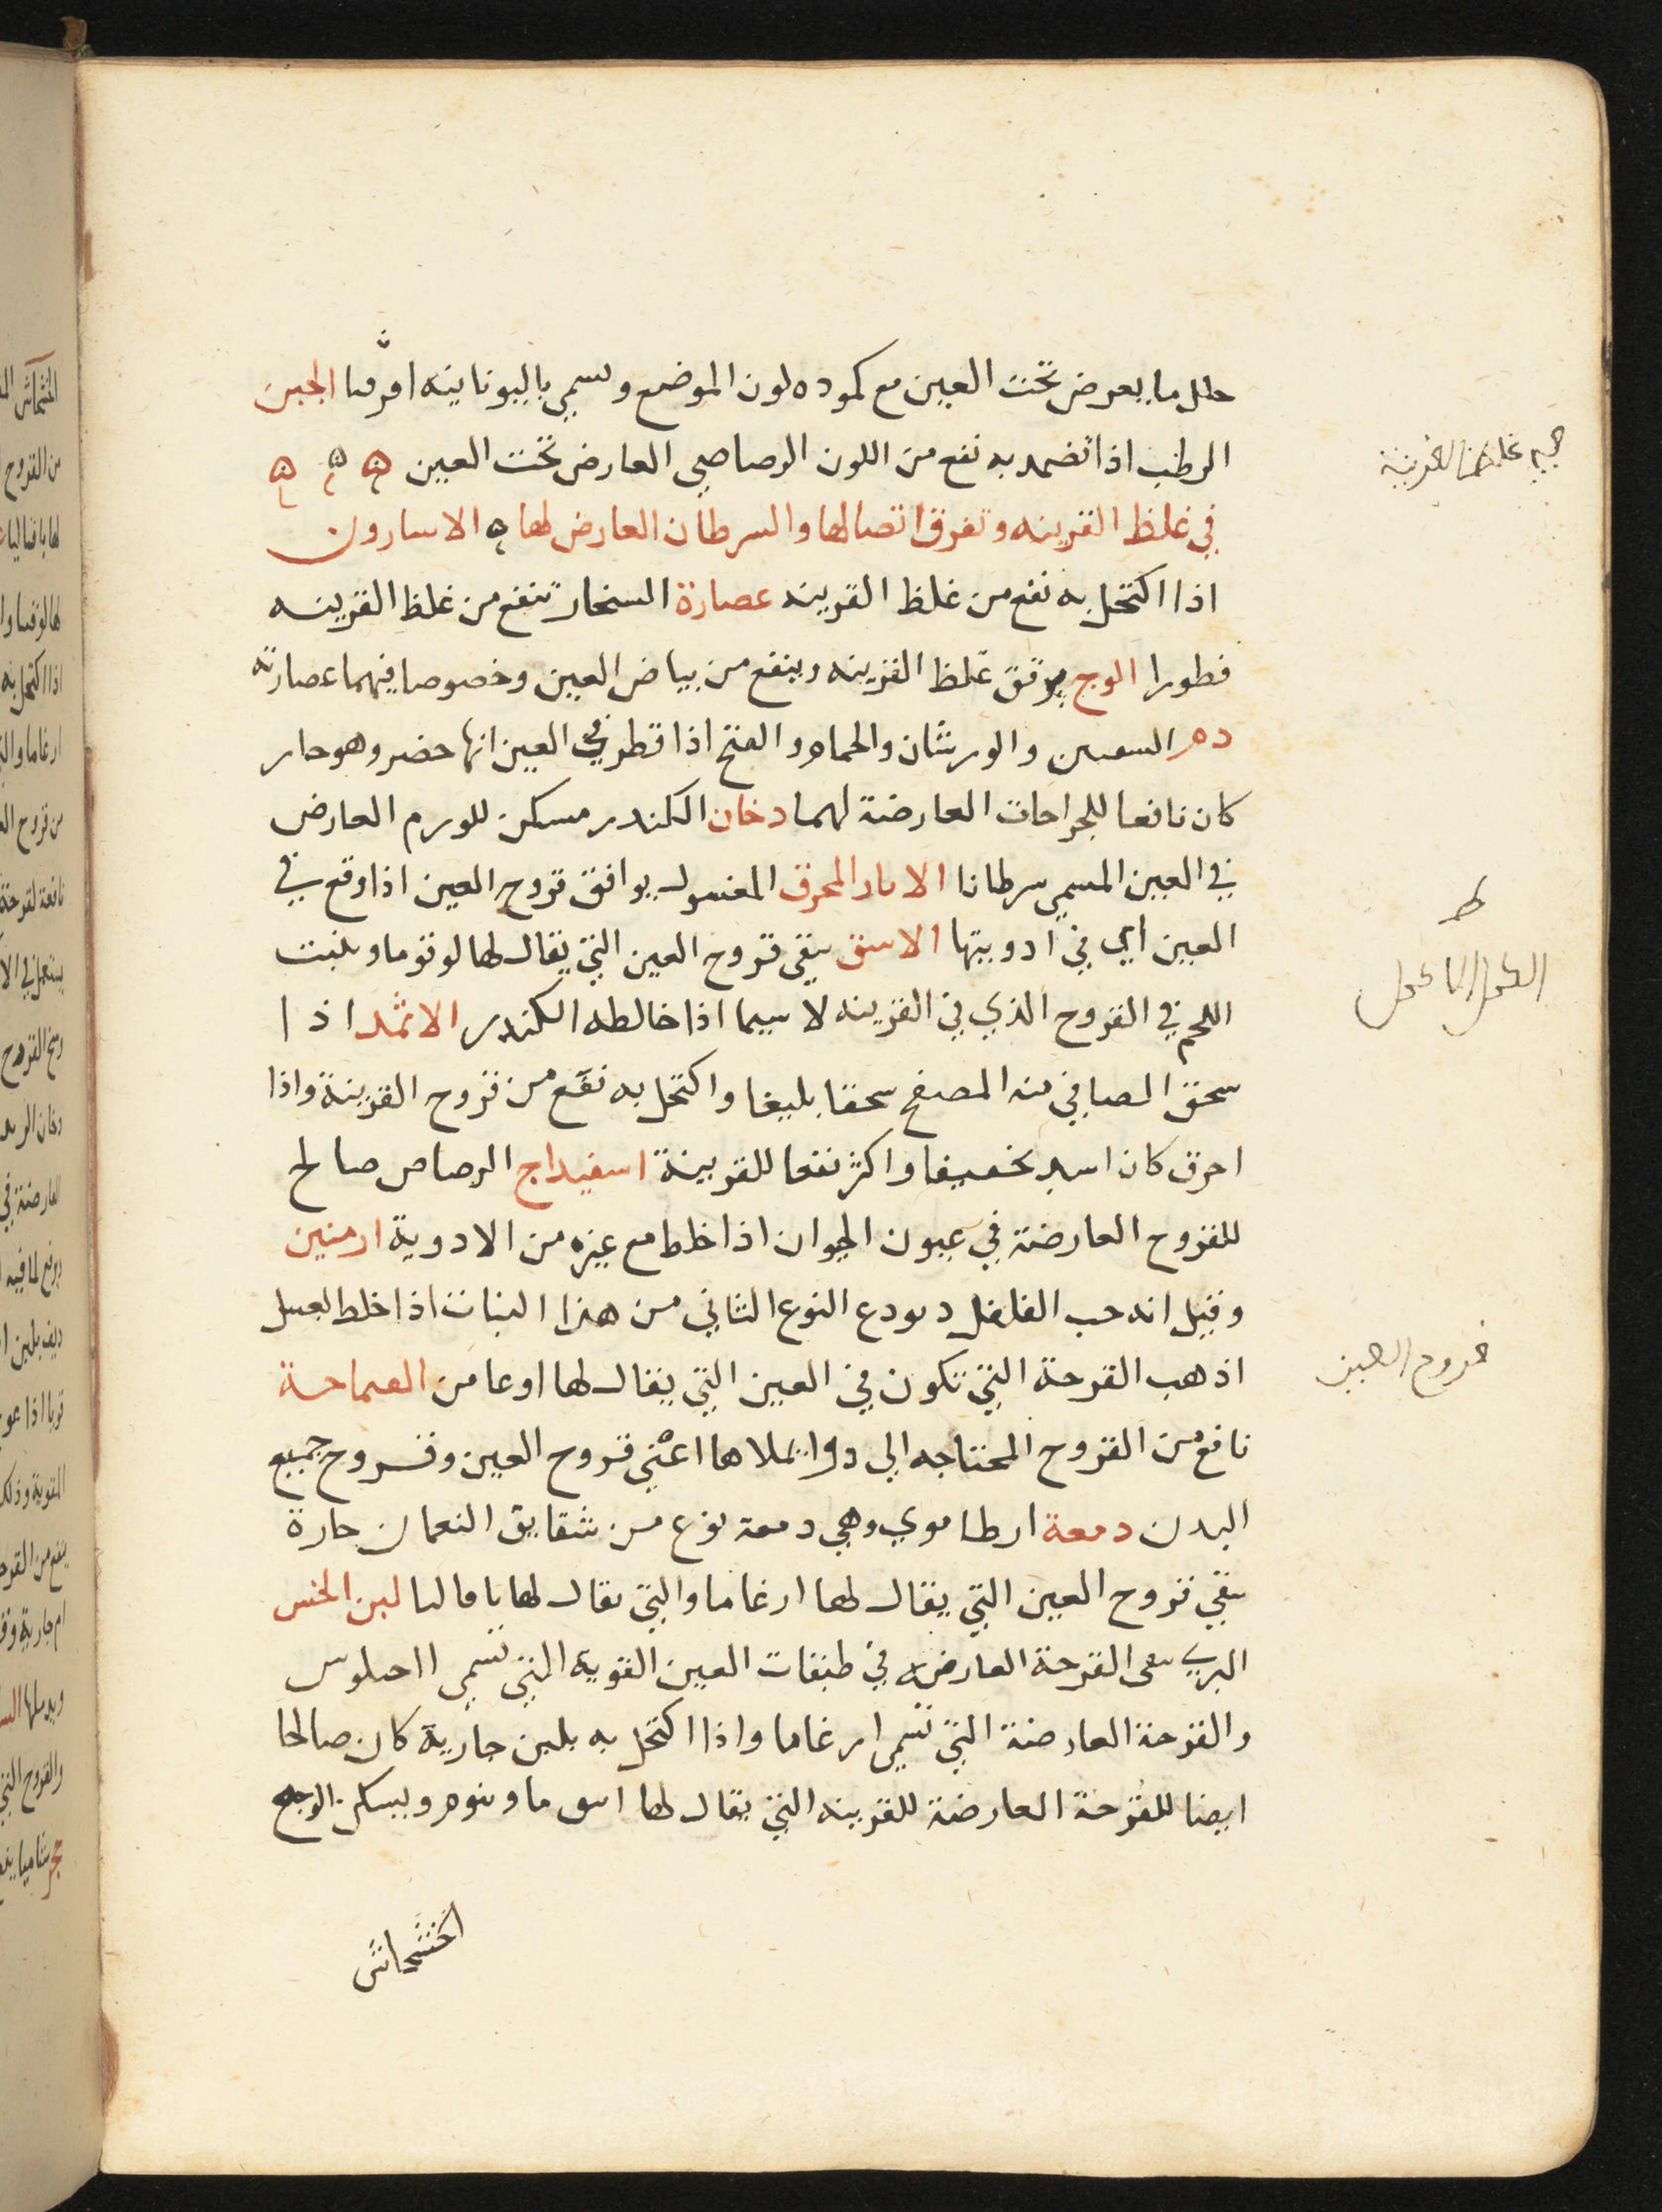 حلل ما يعرض تحت العين مع كموده لون الموضع ويسمي باليونانينه الجبن
الرطب اذا تضمد به نفع من اللون الرصاصي العارض تحت العين ه ه ه
في غلظ القرينه وتفرق اتصالها والسرطان العارض لها ه الاسارون
اذا اكتحل به نفع من غلظ القرينه عصارة السنجار تنفع من غلظ القرينه
قطورا الوج يرقق غلظ القرينه وينفع من بياض العين وخصوصا فيهما عصارته
دم والورشان والحمام اذا قطر في العين حضر وهو حار
كان نافعا للجراحات العارضة لهما دخان الكندر مسكن للورم العارض
في العين المسمي سرطانا الابار المحرق المغسول يوافق قروح العين اذا وقع في
العين اي في ادويتها الاشق ينقي قروح العين التي يقال لها لوقوما وينبت
اللحم في القروح الذي في القرينه لا سيما اذا خالطه الكندر الاثمد اذا
سحق الصافي منه المصفح سحقا بليغا واكتحل به نفع من قروح القرينة واذا
احرق كان اشد تخفيفا واكثر نفعا للقرينة اسفيداج الرصاص صالح
للقروح العارضة في عيون الحيوان اذا خلط مع غيره من الادوية ارمنين
وقيل انه حب الفلفل النوع الثاني من هذا النبات اذا خلط بعسل
اذهب القرحة التي تكون في العين التي يقال لها اوعامن
نافع من القروح المحتاجه الي دوا يملاها اعني قروح العين وقروح جميع
البدن دمعة ارطاموي وهي دمعة نوع من شقايق النعمان حارة
تنقي قروح العين التي يقال لها ارغاما والتي يقال لها لبن الخس
البري ينقي القرحة العارضه في طبقات العين القوية التي تسمي
والقرحة العارضة التي تسمي ارغاما واذا اكتحل به بلبن جارية كان صالحا
ايضا للقرحة العارضة للقرينه التي يقال لها وينوم ويسكن الوجع
الخشخاش
غلظ القرينة
قروح العين